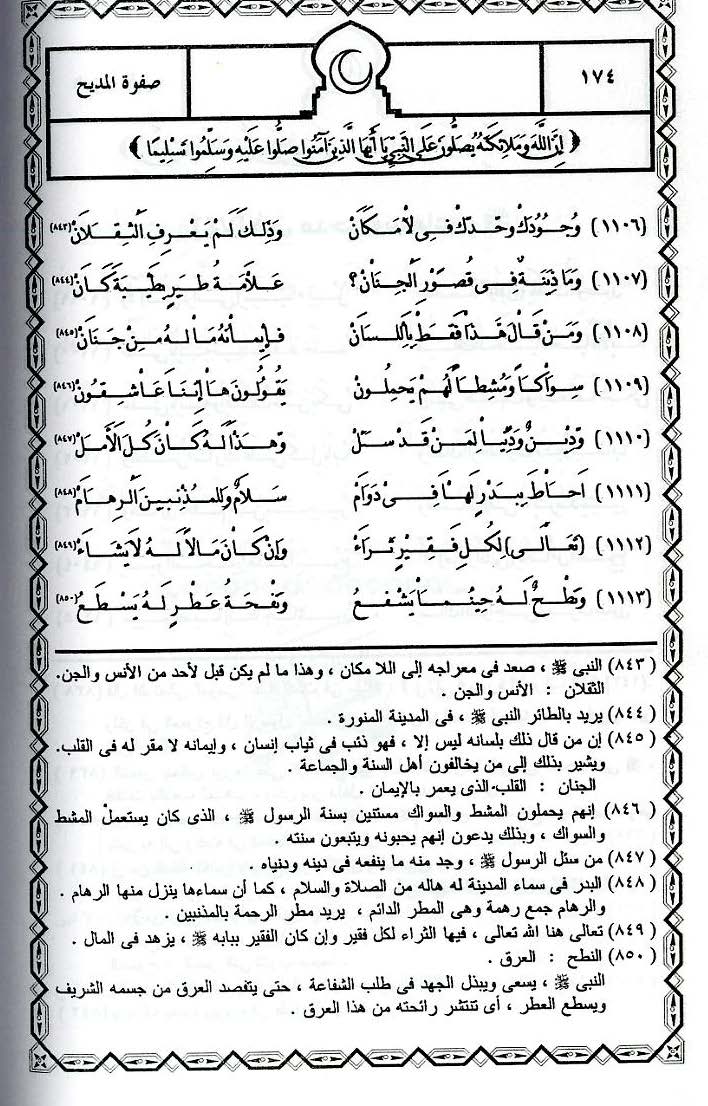 ١٧٤
صفوة المديح
﴿ إِنَّ اللَّهَ وَمَلَائِكَتَهُ يُصَلُّونَ عَلَى النَّبِيِّ يَا أَيُّهَا الَّذِينَ آمَنُوا صَلُّوا عَلَيْهِ وَسَلِّمُوا تَسْلِيمًا ﴾
(١١٠٦) وُجُودُكَ وَحْدَكَ فِى لَامَكَانْ وَذٰلِكَ لَمْ يَعْرِفِ الثَّقَلَانْ (٨٤٣)
(١١٠٧) وَمَا ذِينَةٌ فِى قُصُورِ الْجِنَانْ؟ عَلَامَةُ طَيْرٍ بِطَيْبَةَ كَانْ (٨٤٤)
(١١٠٨) وَمَنْ قَالَ هٰذَا فَقَطْ بِاللِّسَانْ فَإِيمَانُهُ مَا لَهُ مِنْ جَنَانْ (٨٤٥)
(١١٠٩) سِوَاكًا وَمُشْطًا لَهُمْ يَحْمِلُونْ يَقُولُونَ هَا إِنَّنَا عَاشِقُونْ (٨٤٦)
(١١١٠) وَدِينٌ وَدُنْيَا لِمَنْ قَدْ سَئَلْ وَهٰذَا لَهُ كَانَ كُلَّ الْأَمَلْ (٨٤٧)
(١١١١) أَحَاطَ بِبَدْرٍ لَهَا فِى دَوَامْ سَلَامٌ وَلِلْمُذْنِبِينَ الرِّهَامْ (٨٤٨)
(١١١٢) (تَعَالَى) لِكُلِّ فَقِيرٍ ثَرَاءْ وَإِنْ كَانَ مَالًا لَهُ لَا يَشَاءْ (٨٤٩)
(١١١٣) وَنَطْحٌ لَهُ حِينَمَا يَشْفَعُ وَنَفْحَةُ عِطْرٍ لَهُ يَسْطَعُ (٨٥٠)
(٨٤٣) النبى ﷺ ، صعد فى معراجه إلى اللا مكان ، وهذا ما لم يكن قبل لأحد من الأنس والجن.
الثقلان : الأنس والجن .
(٨٤٤) يريد بالطائر النبى ﷺ ، فى المدينة المنورة .
(٨٤٥) إن من قال ذلك بلسانه ليس إلا ، فهو ذئب فى ثياب إنسان ، وإيمانه لا مقر له فى القلب.
ويشير بذلك إلى من يخالفون أهل السنة والجماعة .
الجنان : القلب الذى يعمر بالإيمان .
(٨٤٦) إنهم يحملون المشط والسواك مستنين بسنة الرسول ﷺ ، الذى كان يستعمل المشط
والسواك ، وبذلك يدعون إنهم يحبونه ويتبعون سنته .
(٨٤٧) من سئل الرسول ﷺ ، وجد منه ما ينفعه فى دينه ودنياه .
(٨٤٨) البدر فى سماء المدينة له هاله من الصلاة والسلام ، كما أن سماءها ينزل منها الرهام .
والرهام جمع رهمة وهى المطر الدائم ، يريد مطر الرحمة بالمذنبين .
(٨٤٩) تعالى هنا الله تعالى ، فيها الثراء لكل فقير وإن كان الفقير ببابه ﷺ ، يزهد فى المال .
(٨٥٠) النطح : العرق .
النبى ﷺ ، يسعى ويبذل الجهد فى طلب الشفاعة ، حتى يتفصد العرق من جسمه الشريف
ويسطع العطر ، أى تنتشر رائحته من هذا العرق .